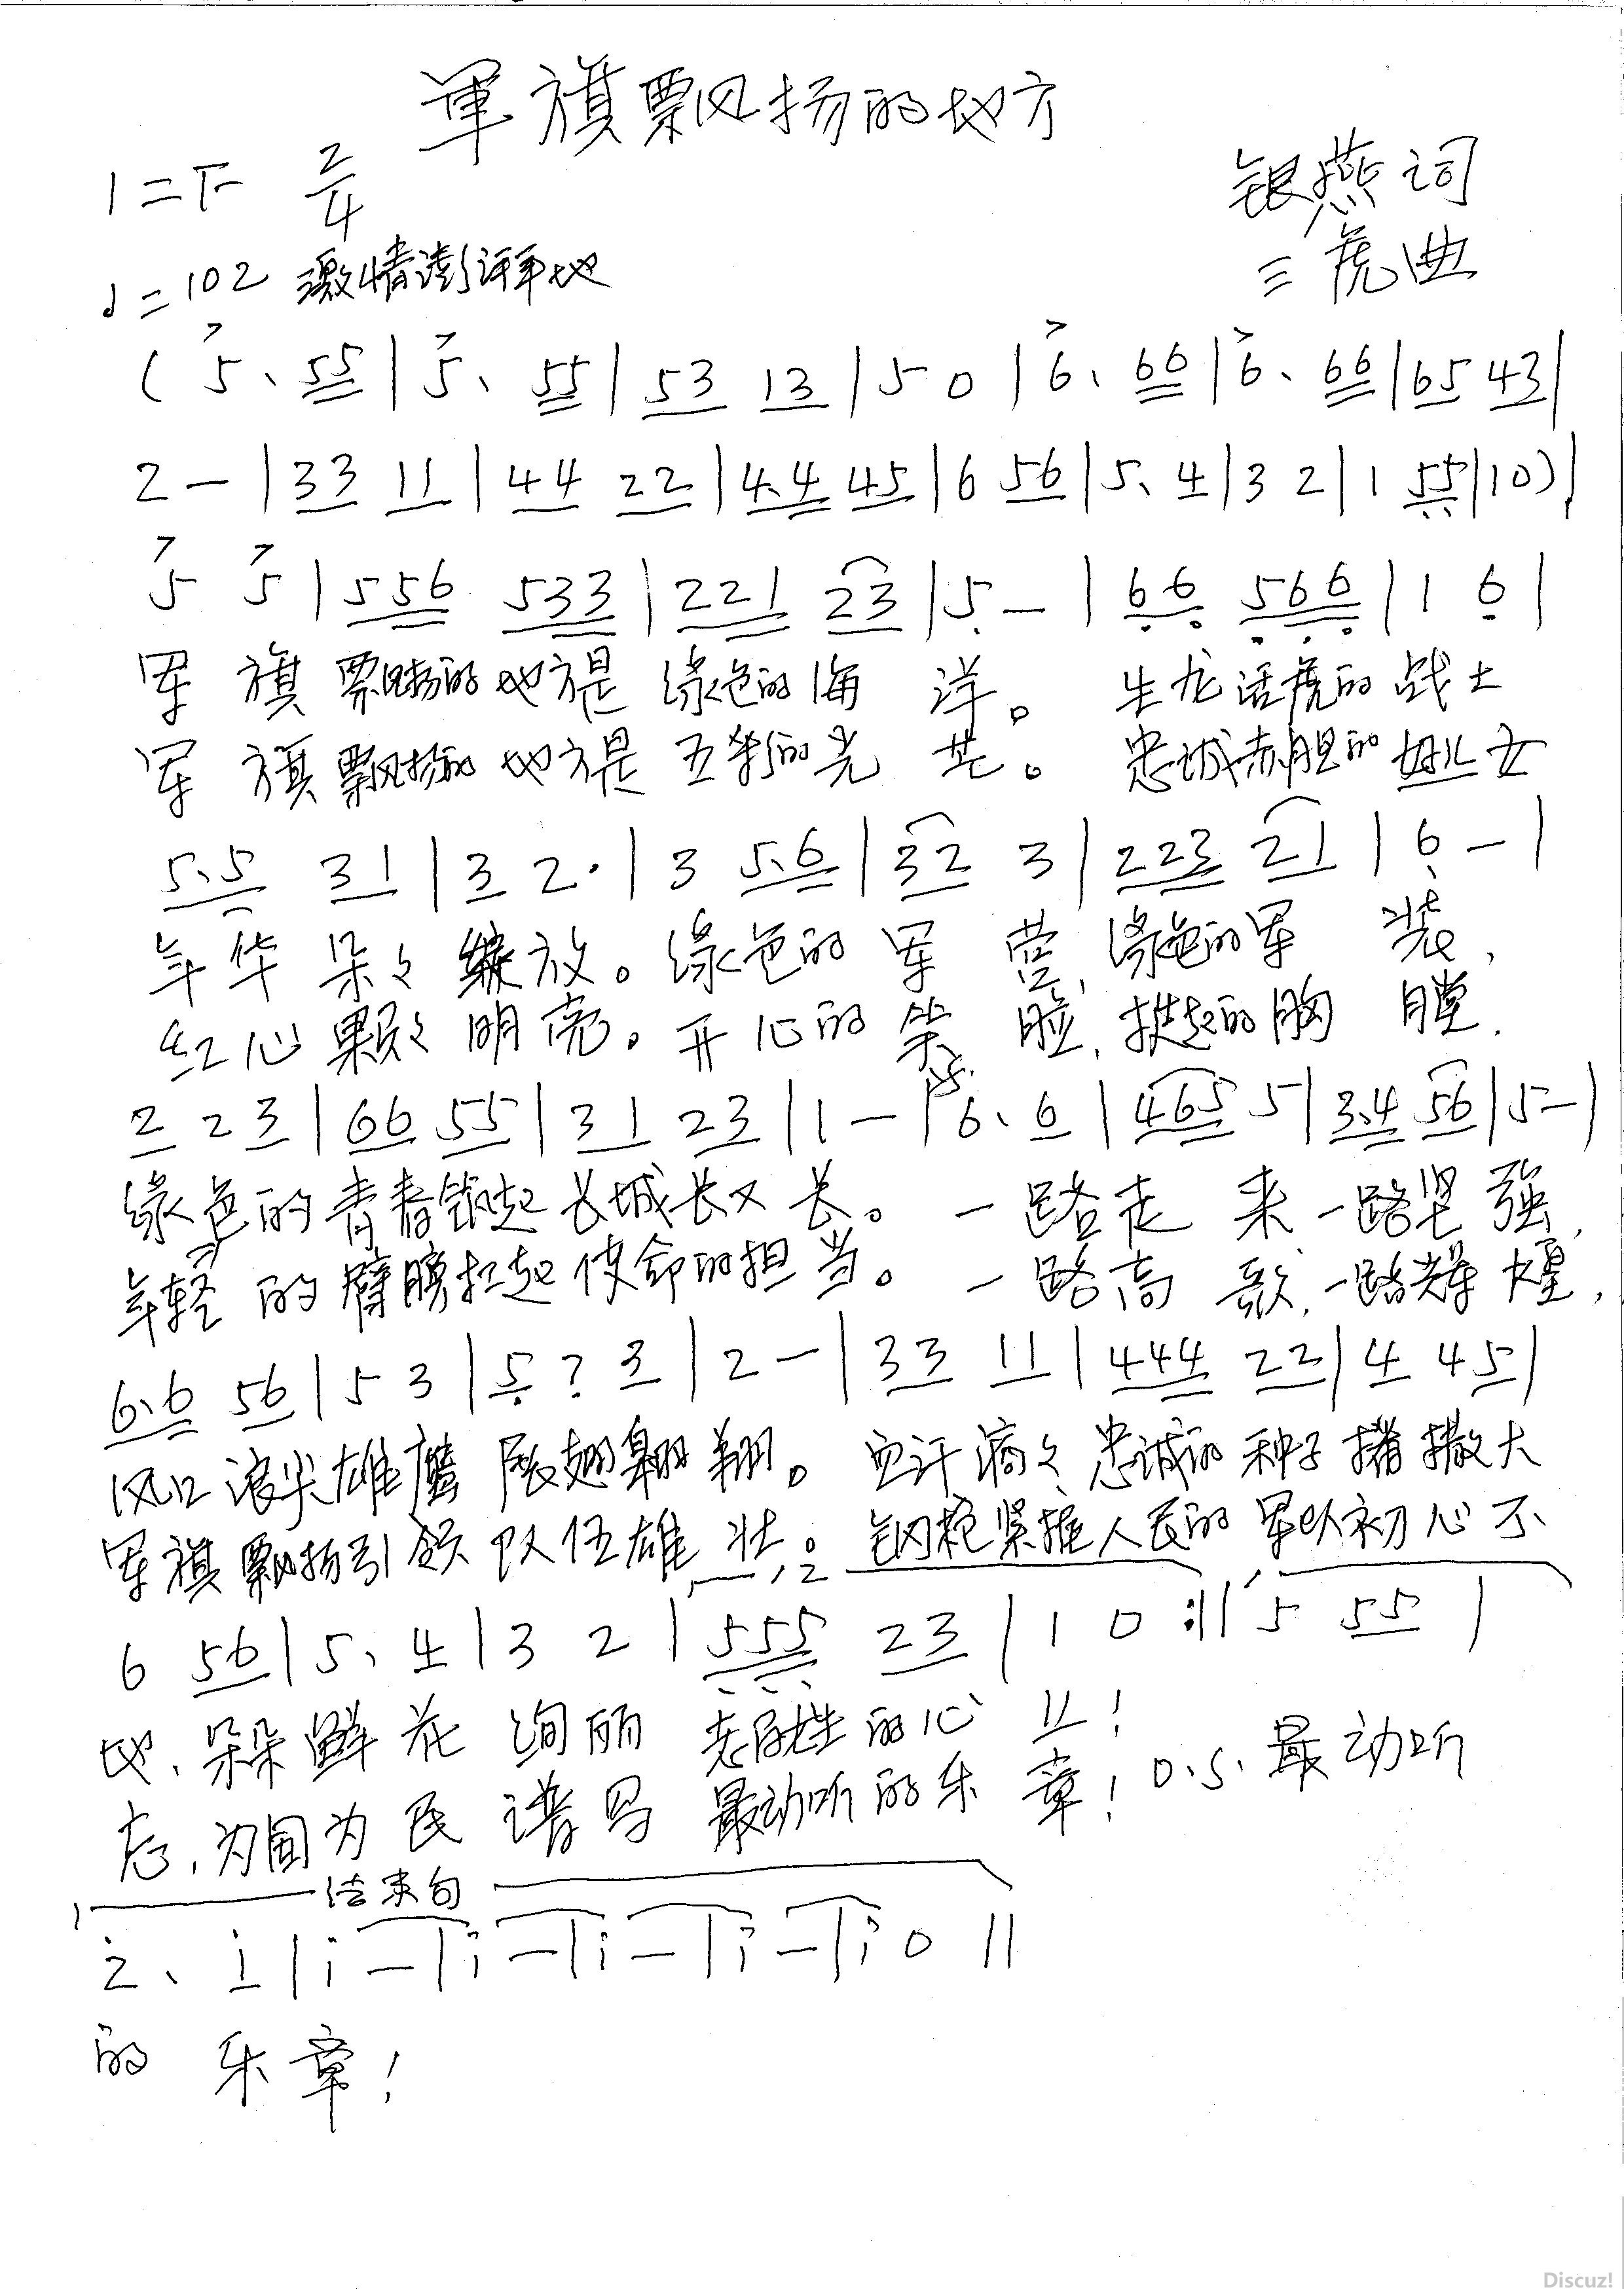 軍旗飘扬的地方
1=F 2/4
银燕词
♩=102 激情澎湃地
三虎曲
( 5、 55 | 5、 55 | 53 13 | 5 0 | 6、 66 | 6、 66 | 65 43 |
2 — | 33 11 | 44 22 | 4.4 45 | 6 56 | 5、 4 | 3 2 | 1 55 | 10) |
5 5 | 556 533 | 221 23 | 5 — | 66 566 | 1 6 |
军 旗 飘扬的地方是 绿色的海 洋。 生龙活虎的战士
军 旗 飘扬的地方是 五彩的光 芒。 忠诚赤胆的好儿女
5.5 31 | 3 2· | 3 5.6 | 32 3 | 223 21 | 6 — |
年华 朵々 绽放。绿色的 军 营,绿色的军 装,
红心 颗々 明亮。开心的 笑 脸,挺起的胸 膛,
2 2 3 | 66 55 | 31 23 | 1 — | 6、 6 | 465 5 | 3.4 56 | 5 — |
绿色的青春筑起 长城长又 长。 一路走 来 一路坚 强,
年轻的臂膀扛起 使命的担 当。 一路高 歌,一路辉 煌,
6.6 56 | 5 3 | 5 ? 3 | 2 — | 33 11 | 444 22 | 4 45 |
风口浪尖雄鹰 展翅翱 翔。 血汗滴々 忠诚的 种子 播 撒大
军旗飘扬引领 队伍雄 壮。 钢枪紧握人民的 军队初 心不
1、2
6 56 | 5、 4 | 3 2 | 555 23 | 1 0 :|| 5 55 |
地、朵朵鲜 花 绚丽 老百姓的心 上!
忘,为国为 民 谱写 最动听的乐 章! D.S. 最 动听
结束句
2、 1 | i — | i — | i — | i — | i 0 ||
的 乐章!
Discuz!